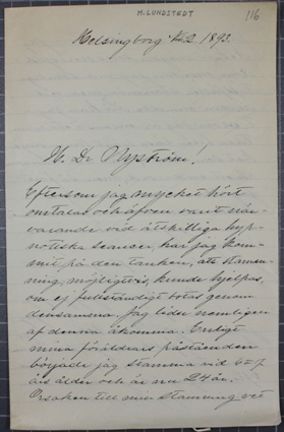 M. LUNDSTEDT
116
Helsingborg 1893.
H. Dr Nyström!
Eftersom jag mycket hört
omtalas och äfven varit när-
varande vid åtskilliga hyp-
notiska seancer, har jag kom-
mit på den tanken, att stam-
ning, möjligtvis, kunde hjelpas,
om ej fullständigt botas genom
densamma. Jag lider nemligen
af denna åkomma. Enligt
mina föräldrars påståenden
började jag stamma vid 6 = 7
års ålder och är nu 24 år.
Orsaken till min stamning vet